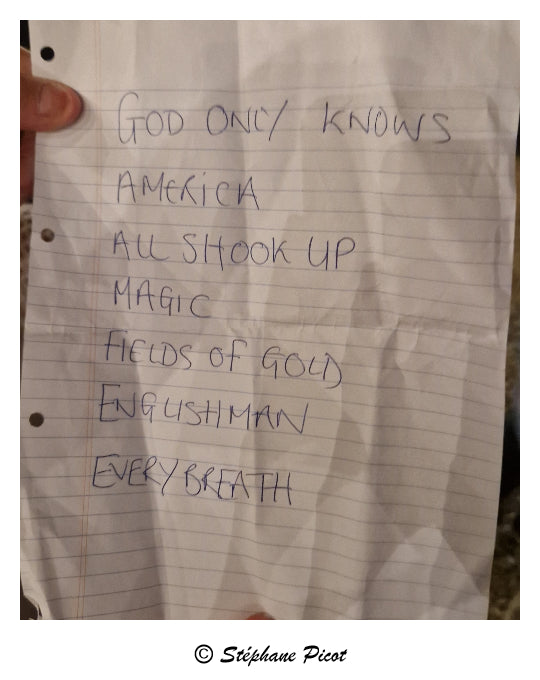 GOD ONLY KNOWS
AMERICA
ALL SHOOK UP
MAGIC
FIELDS OF GOLD
ENGLISHMAN
EVERY BREATH
© Stéphane Picot